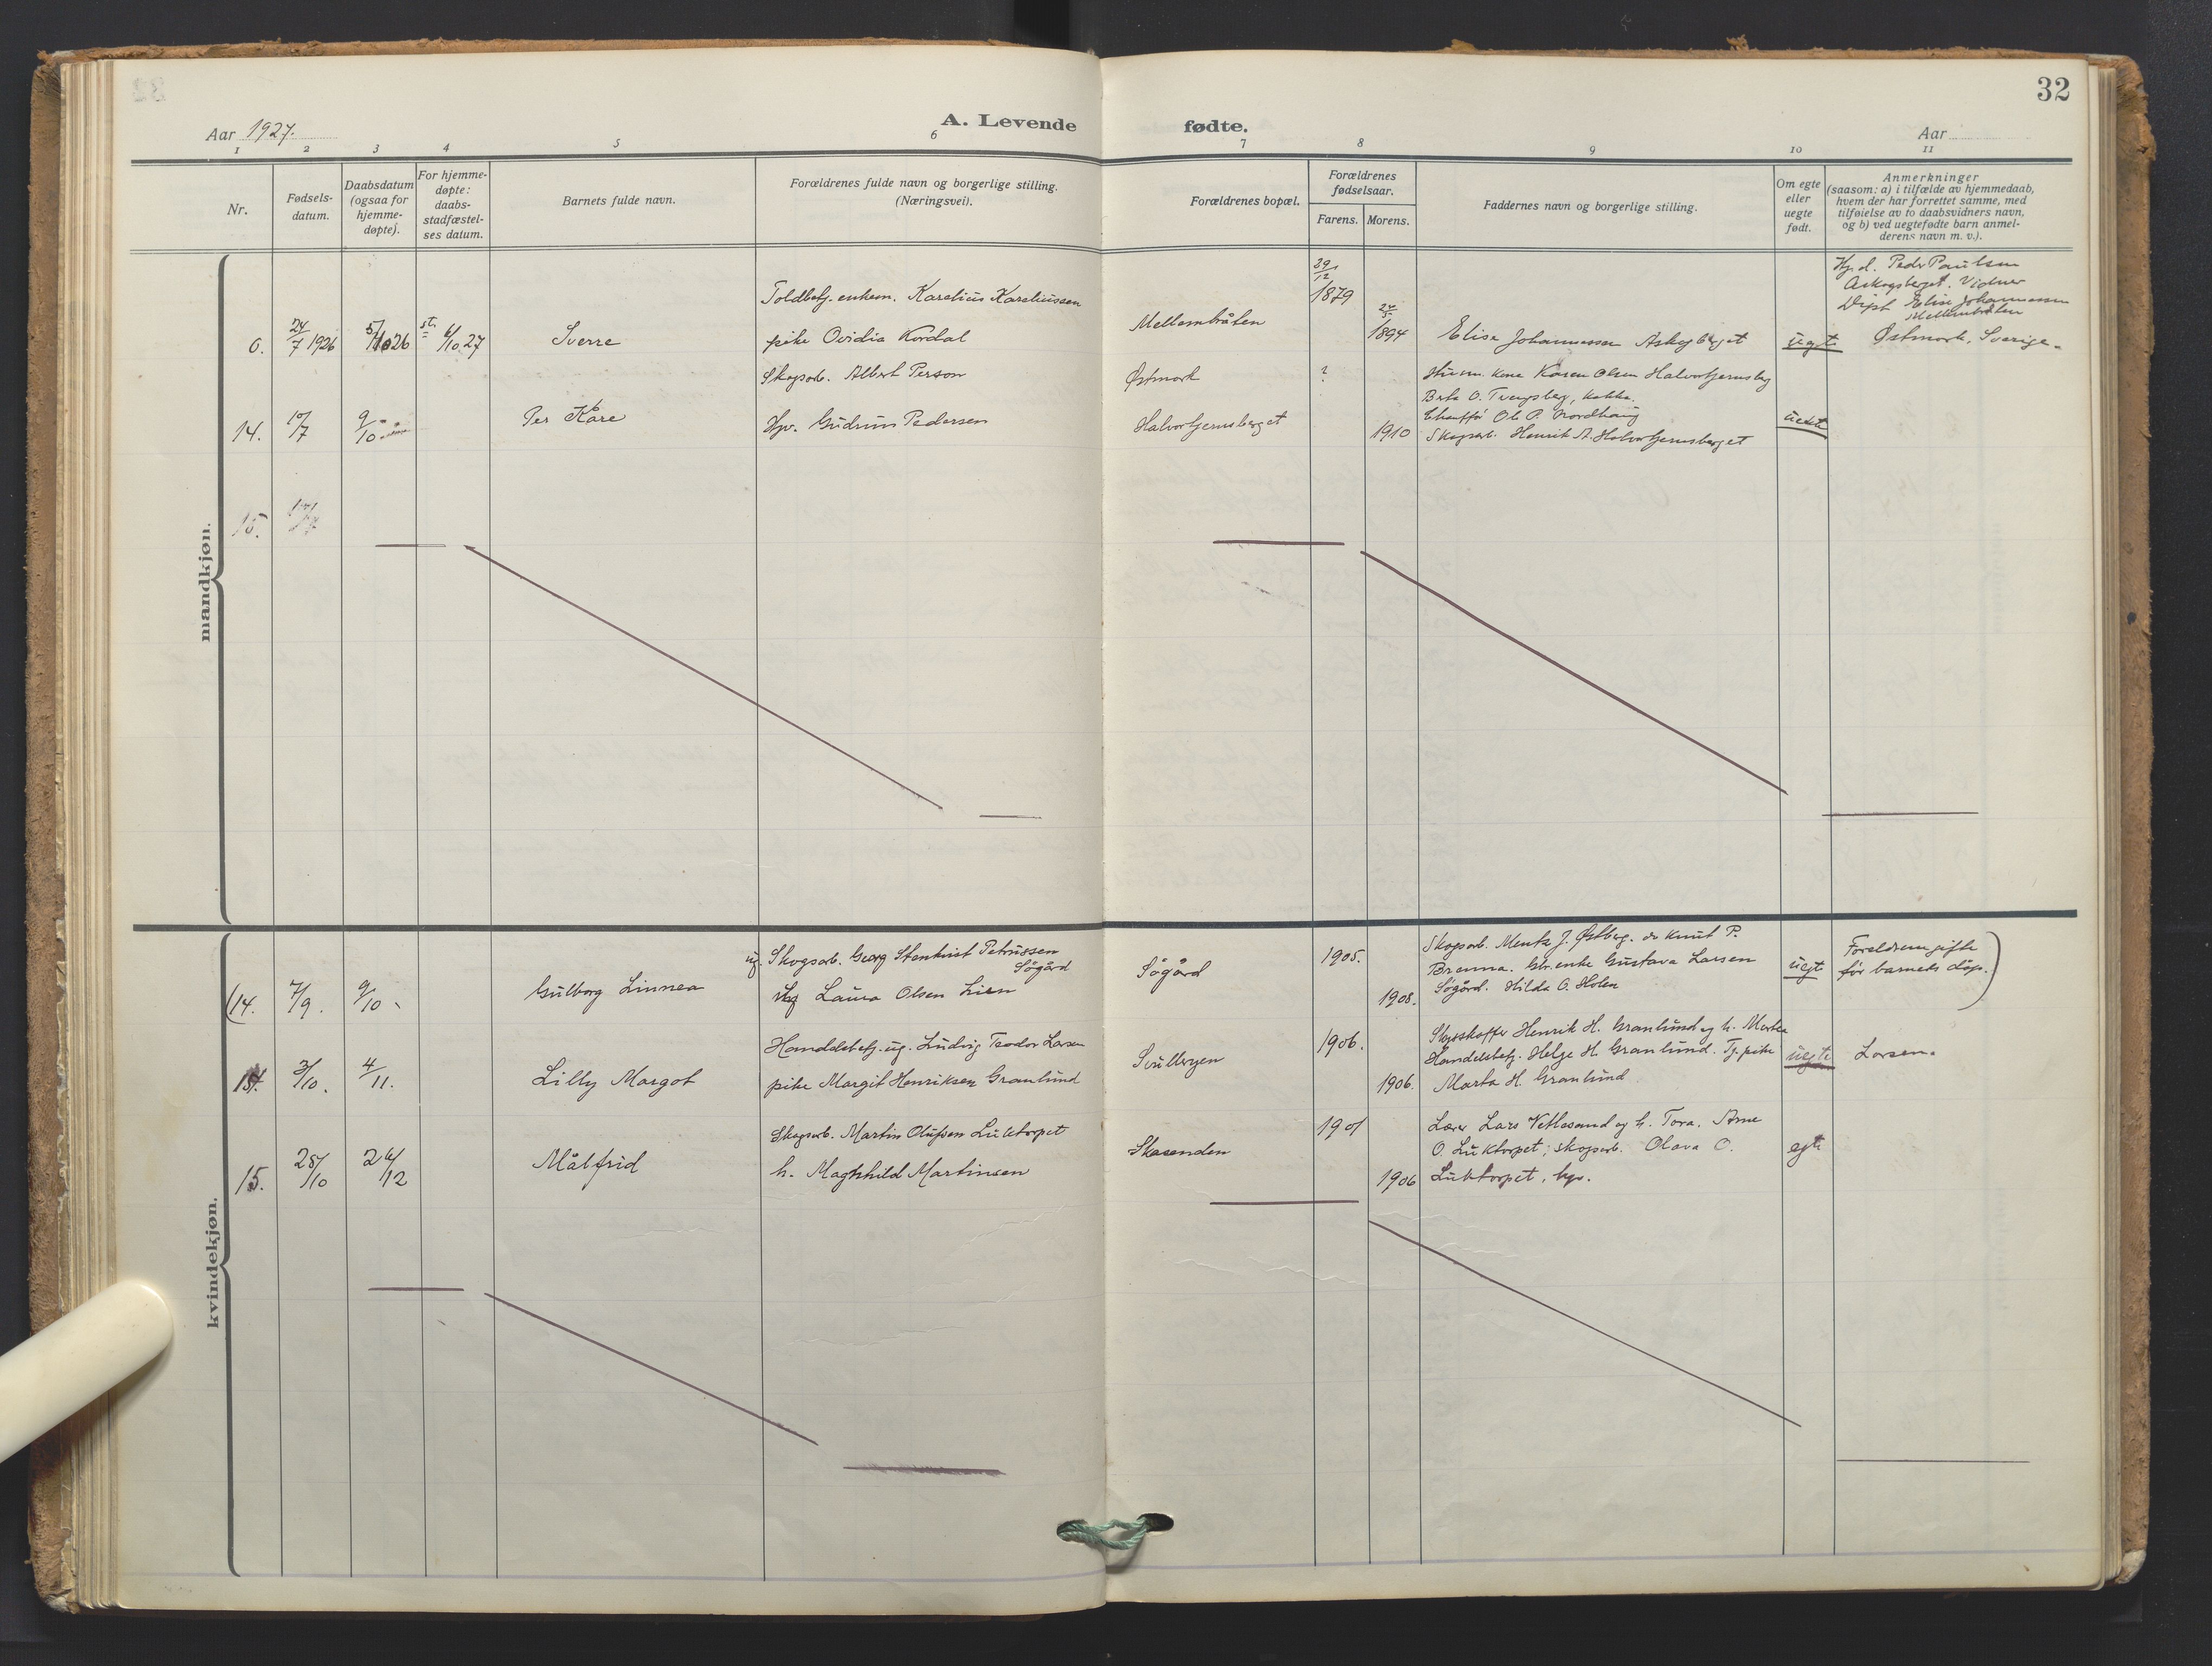 32
A. Levende fødte.
Aar 1927.
Aar
1 2 3 4 5 6 7 8 9 10 11
Nr.
Fødsels-
datum.
Daabsdatum
(ogsaa for
hjemme-
døpte).
For hjemme-
døpte:
daabs-
stadfæstel-
ses datum.
Barnets fulde navn.
Forældrenes fulde navn og borgerlige stilling.
(Næringsvei).
Forældrenes bopæl.
Forældrenes
fødselsaar.
Farens. Morens.
Faddernes navn og borgerlige stilling.
Om egte
eller
uegte
født.
Anmerkninger
(saasom: a) i tilfælde av hjemmedaab,
hvem der har forrettet samme, med
tilføielse av to daabsvidners navn,
og b) ved uegtefødte barn anmel-
derens navn m. v.).
mandkjøn.
0. 24/7 1926 5/10 26 st. 6/10 27
Sverre
Toldbetj. enkem. Karelius Kareliussen
pike Ovidia Kordal
Mellembråten
29/12
1879
1894
Elise Johannessen Askogberget
uegte
Hj.d. Peder Paulsen
Askogsberget. Vidner
Elise Johannessen
Mellembråten
Østmark, Sverige.
14. 17/7 9/10
Per Kåre
Skogsarb. Albert Person
Hpv. Gudrun Pedersen
Østmark
Halvortjernsberget
?
1910
kone Karen Olsen Halvortjernsberg
Chauffør Ole P. Nordhaug
Skogsarb. Henrik A. Halvortjernsberget
uegte
15.
kvindekjøn.
(14. 7/9. 9/10
Gulborg Linnea
ug. Skogsarb. Georg Stenkvist Petrussen
Sögård
Laura Olsen Lien
Sögård
1905.
1908.
Skogsarb. Mentz J. Østberg. do Knut P.
Brenna. Gbr. enke Gustava Larsen
Sögård. Hilda O. Holen
uegte
Foreldrene gifte
før barnets dåp.)
14. 3/10. 4/11.
Lilly Margot
Handelsbetj. ug. Ludvig Teodor Larsen
pike Margit Henriksen Granlund
Svullergen
1906.
1906.
Henrik H. Granlund og h. Marta
Handelsbetj. Helge H. Granlund. Tj. pike
Marta H. Granlund
uegte
Larsen.
15. 28/10 26/12
Målfrid
Skogsarb. Martin Olufsen Luktorpet
h. Maghhild Martinsen
Skasenden
1901
1906
Lærer Lars Vetlesand og h. Tora. Arne
O. Luktorpet; skogsarb. Olava O.
Luktorpet, hpv.
egte